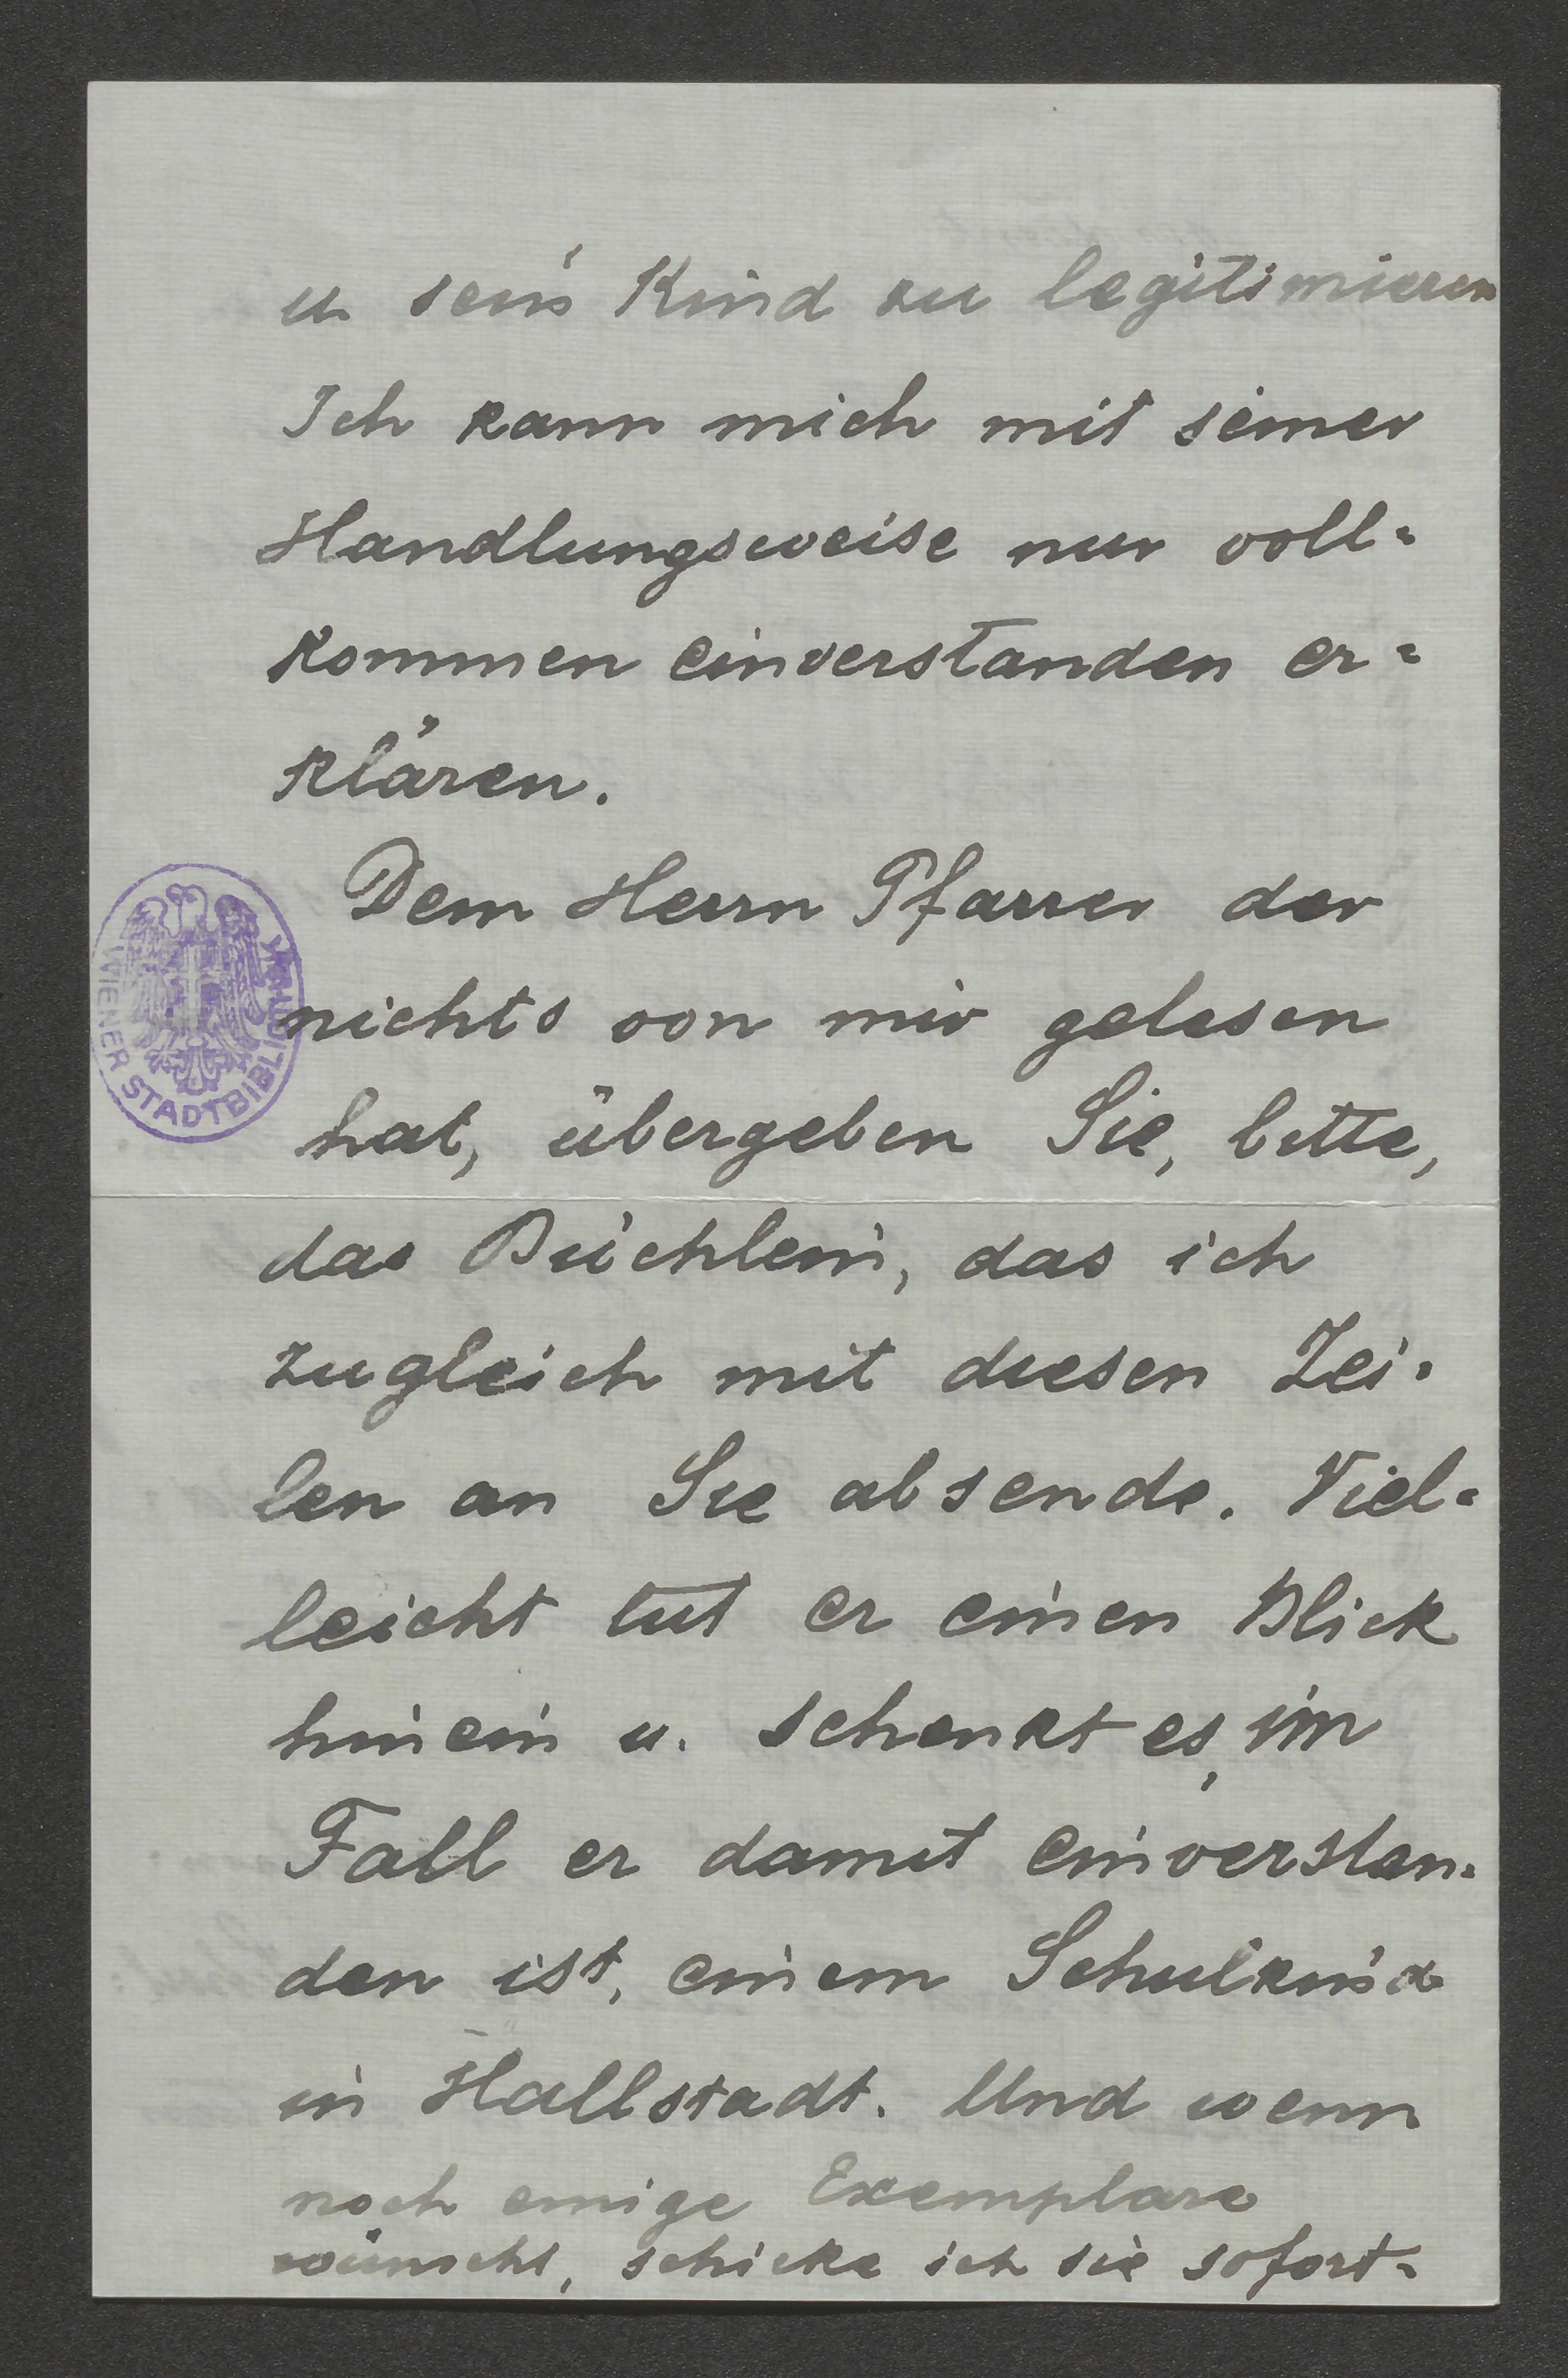 u. sein Kind zu legitimieren
Ich kann mich mit seiner
Handlungsweise nur voll=
kommen einverstanden er=
klären.
Dem Herrn Pfarrer der
nichts von mir gelesen
hat, übergeben Sie, bitte,
das Büchlein, das ich
zugleich mit diesen Zei-
len an Sie absende. Viel=
leicht tut er einen Blick
hinein u. schenkt es, im
Fall er damit einverstan=
den ist, einem Schulkind
in Hallstadt. Und wenn
noch einige Exemplare
wünscht, schicke ich sie sofort=
WIENER STADTBIBLIOTHEK